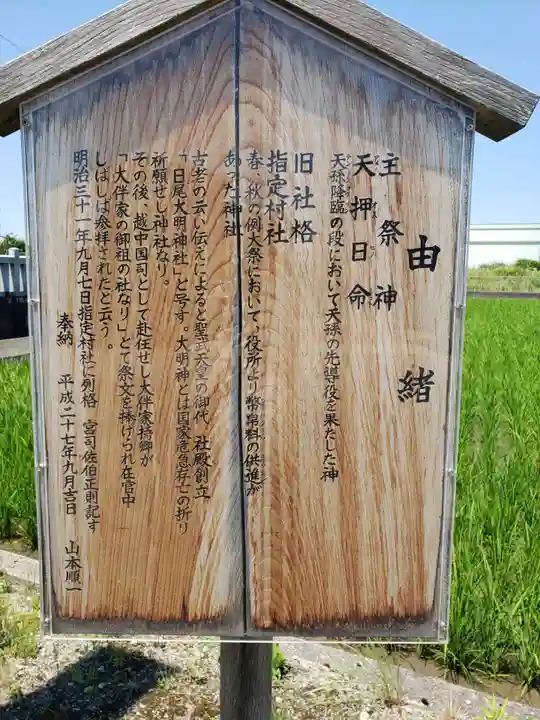 由緒
主祭神
天押日命
天孫降臨の段において天孫の先導役を果たした神
旧社格
指定村社
春、秋の例大祭において、役所より幣帛料の供進が
あった神社
古老の云い伝えによると聖武天皇の御代、社殿創立、
「日尾大明神社」と号す。大明神とは国家危急存亡の折り
祈願せし神社なり。
その後、越中国司として赴任せし大伴家持卿が
「大伴家の御祖の社なり」とて祭文を捧げられ在官中
しばしば参拝されたと云う。
明治三十一年九月七日指定村社に列格　宮司佐伯正則記す
奉納　平成二十七年九月吉日　山本順一